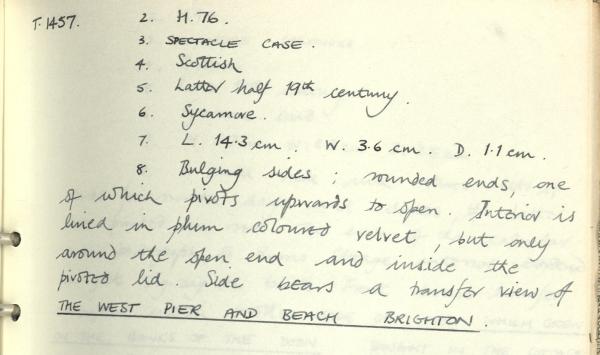 T.1457. 2. H.76.
3. SPECTACLE CASE.
4. Scottish
5. Latter half 19th century.
6. Sycamore.
7. L. 14.3 cm. W. 3.6 cm. D. 1.1 cm.
8. Bulging sides; rounded ends, one
of which pivots upwards to open. Interior is
lined in plum coloured velvet, but only
around the open end and inside the
pivoted lid. Side bears a transfer view of
THE WEST PIER AND BEACH BRIGHTON.